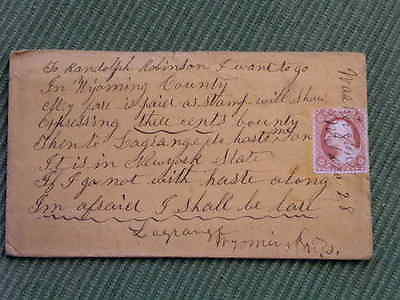 To Randolph Robinson I want to go
In Wyoming County
My fare is paid as stamp will show
Expressing three cents bounty
Then to Lagrange do haste me on
It is in Newyork State
If I go not with haste along
I'm afraid I shall be late
Lagrange
Wyoming
Was
28